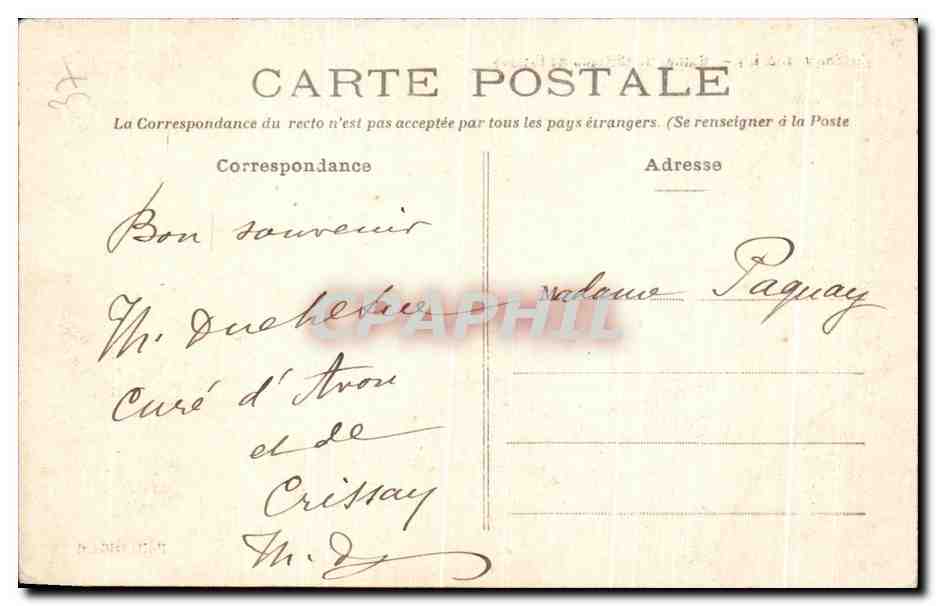 37
CARTE POSTALE
La Correspondance du recto n'est pas acceptée par tous les pays étrangers. (Se renseigner à la Poste
Correspondance
Adresse
Bon souvenir
Th. Duchesne
curé d'Avon
et de
Crissay
Th. D
Madame Paquay
CPAPHIL